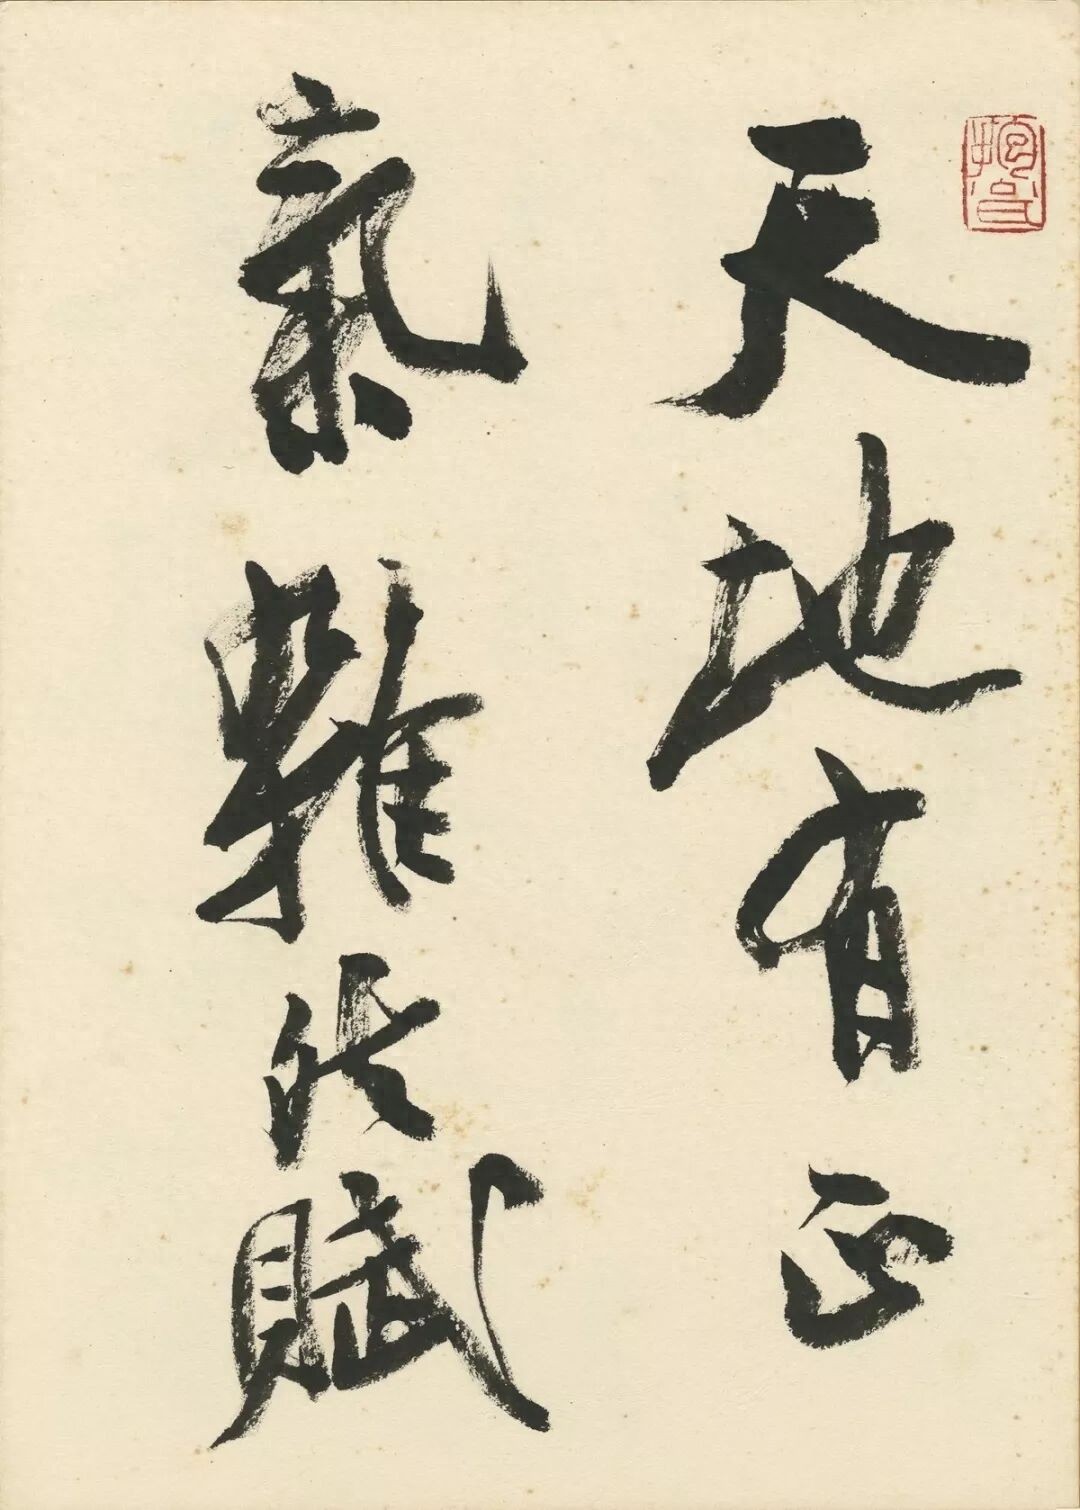 天地有正
氣雜然賦